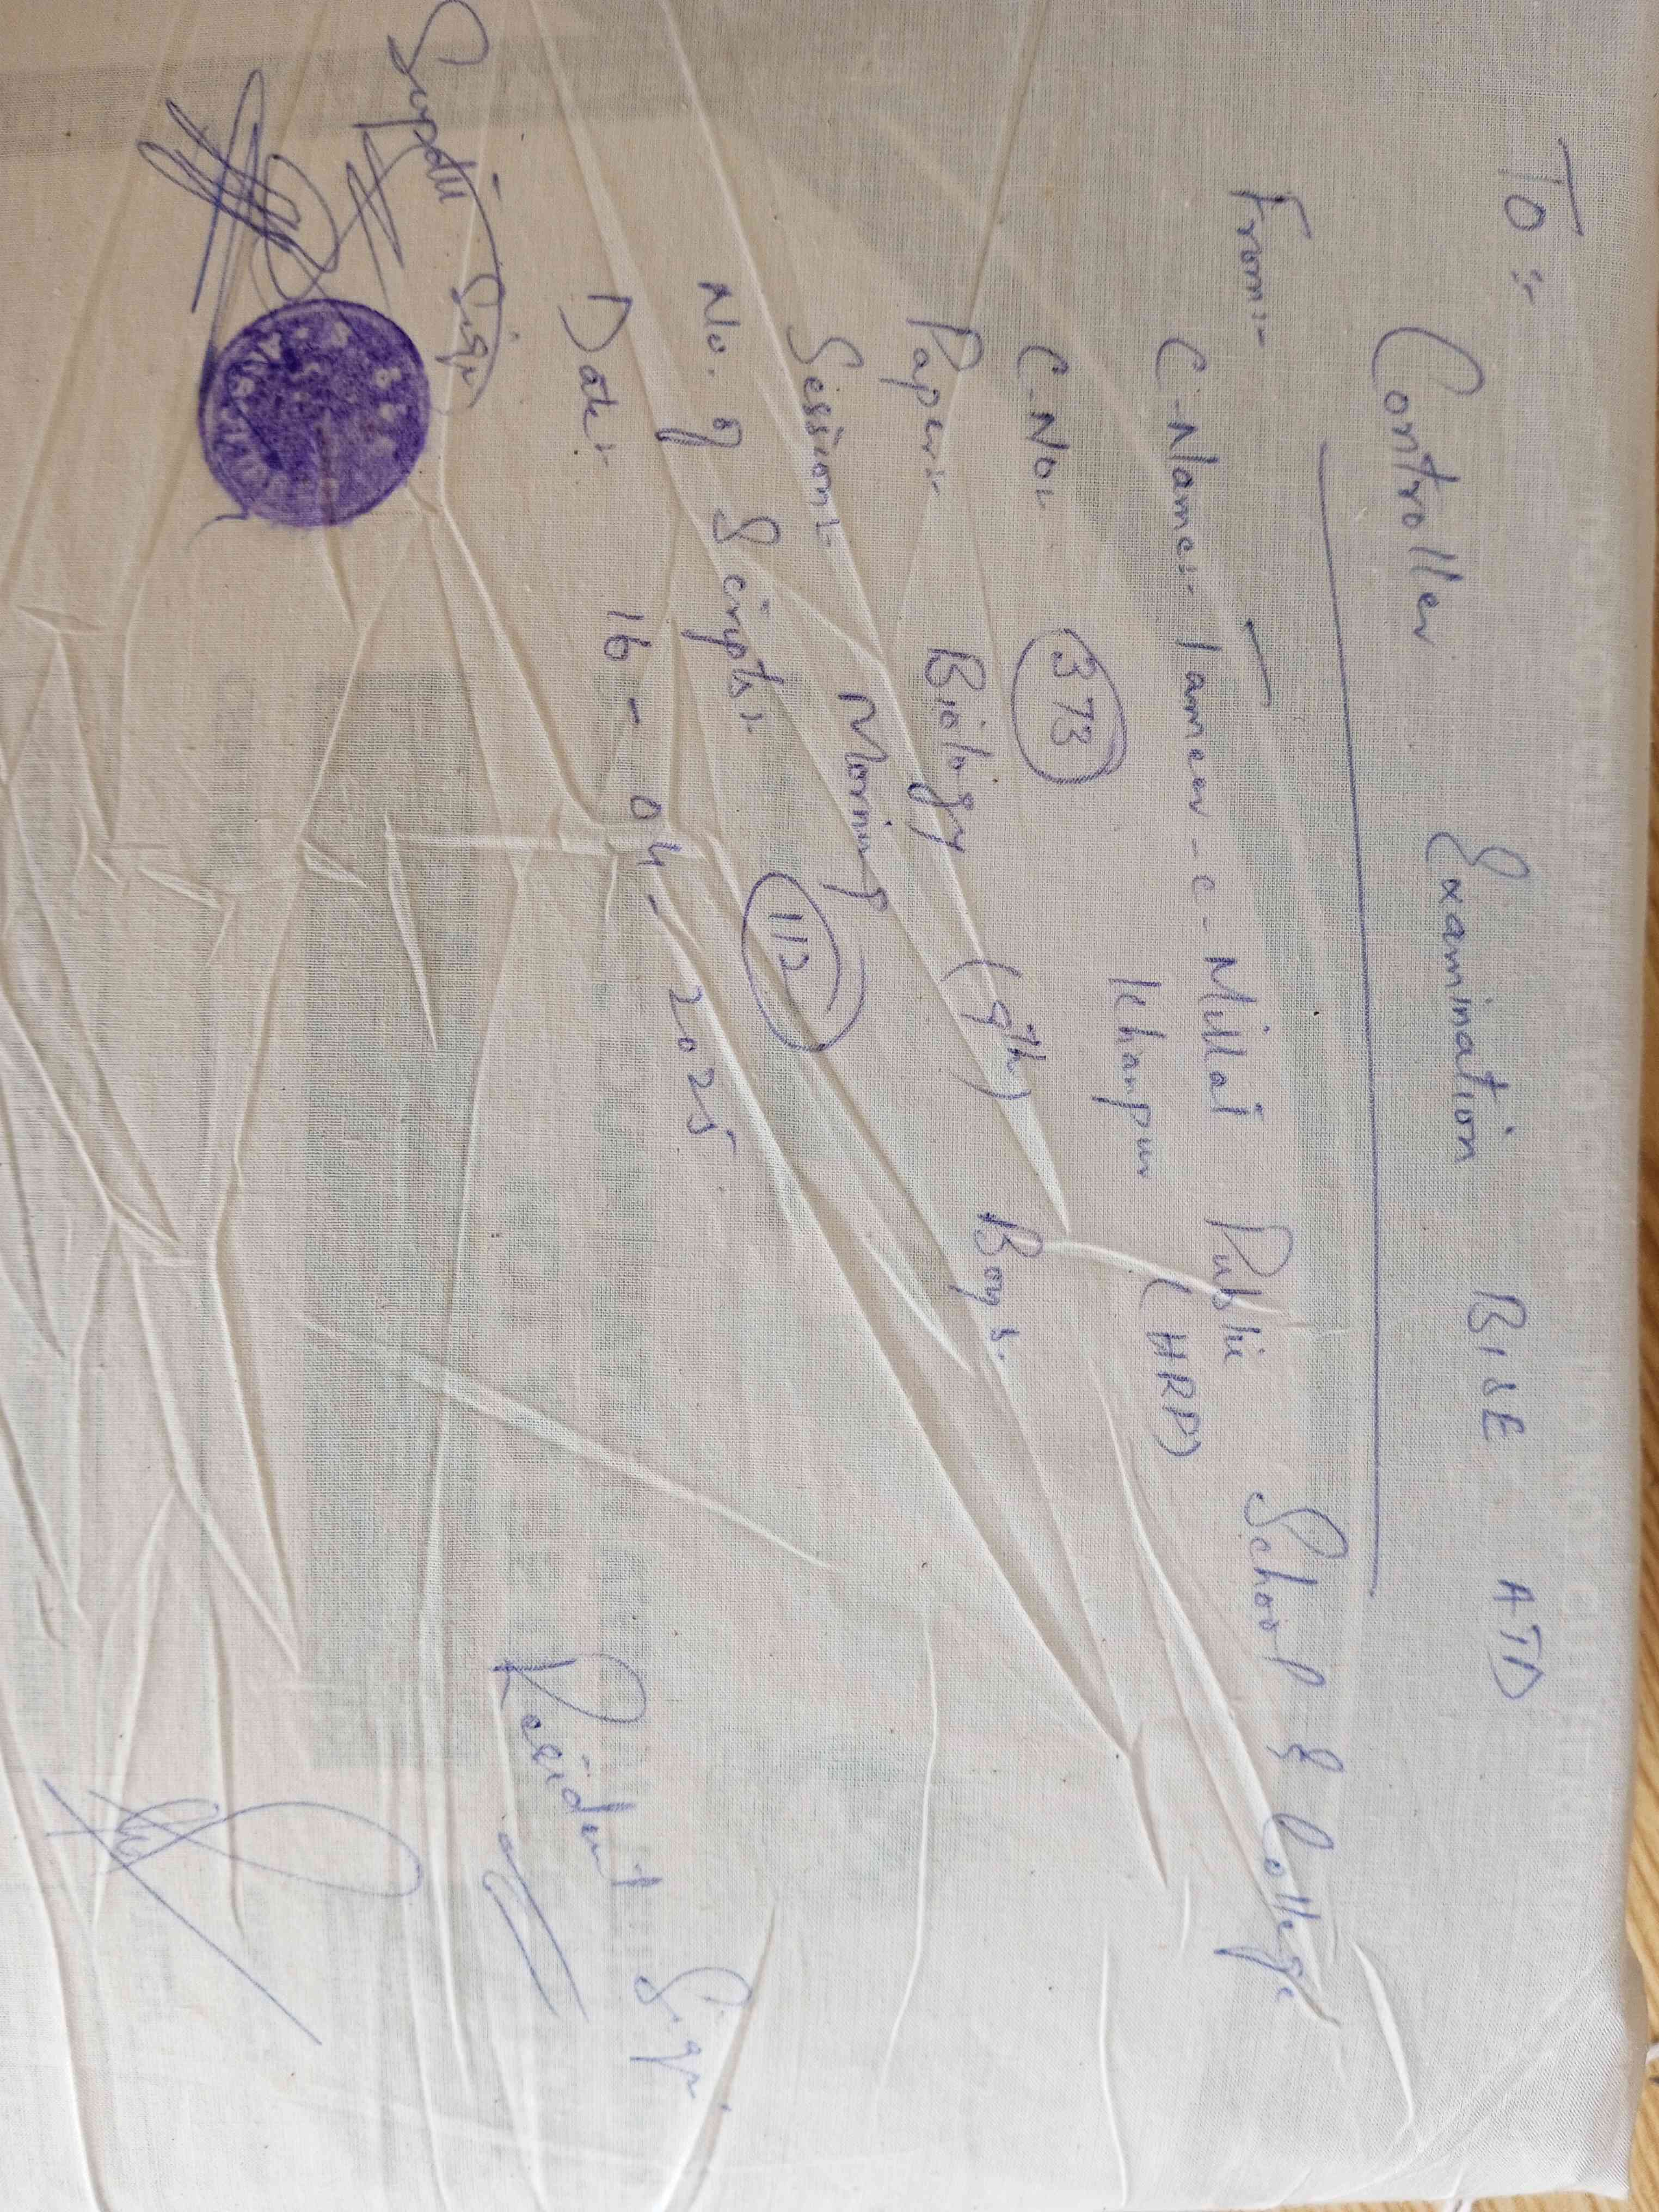 To :-
Controller Examination BISE ATD
From:-
C-Name:- Tameer-e-Millat Public School & College
Khanpur (HRP)
C-No:- 373
Paper:- Biology (9th) Boys.
Session:- Morning
No. of Scripts:- 112
Date:- 16-04-2025
Supdtt Sign
Resident Sign